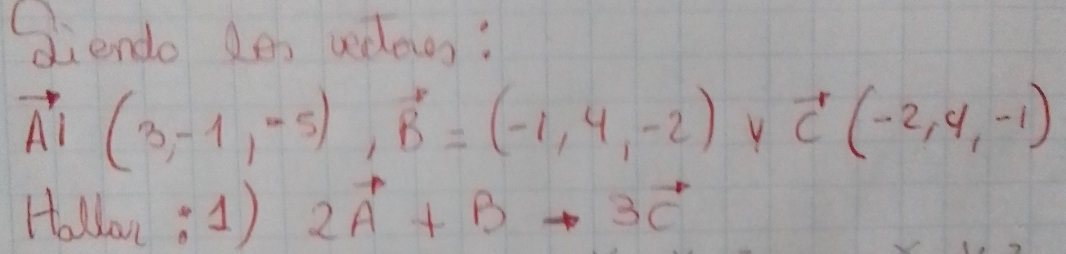 Siendo los vectores:
A⃗ (3,-1,-5), B⃗ = (-1,4,-2) y C⃗ (-2,4,-1)
Hallar: 1) 2A⃗ + B - 3C⃗